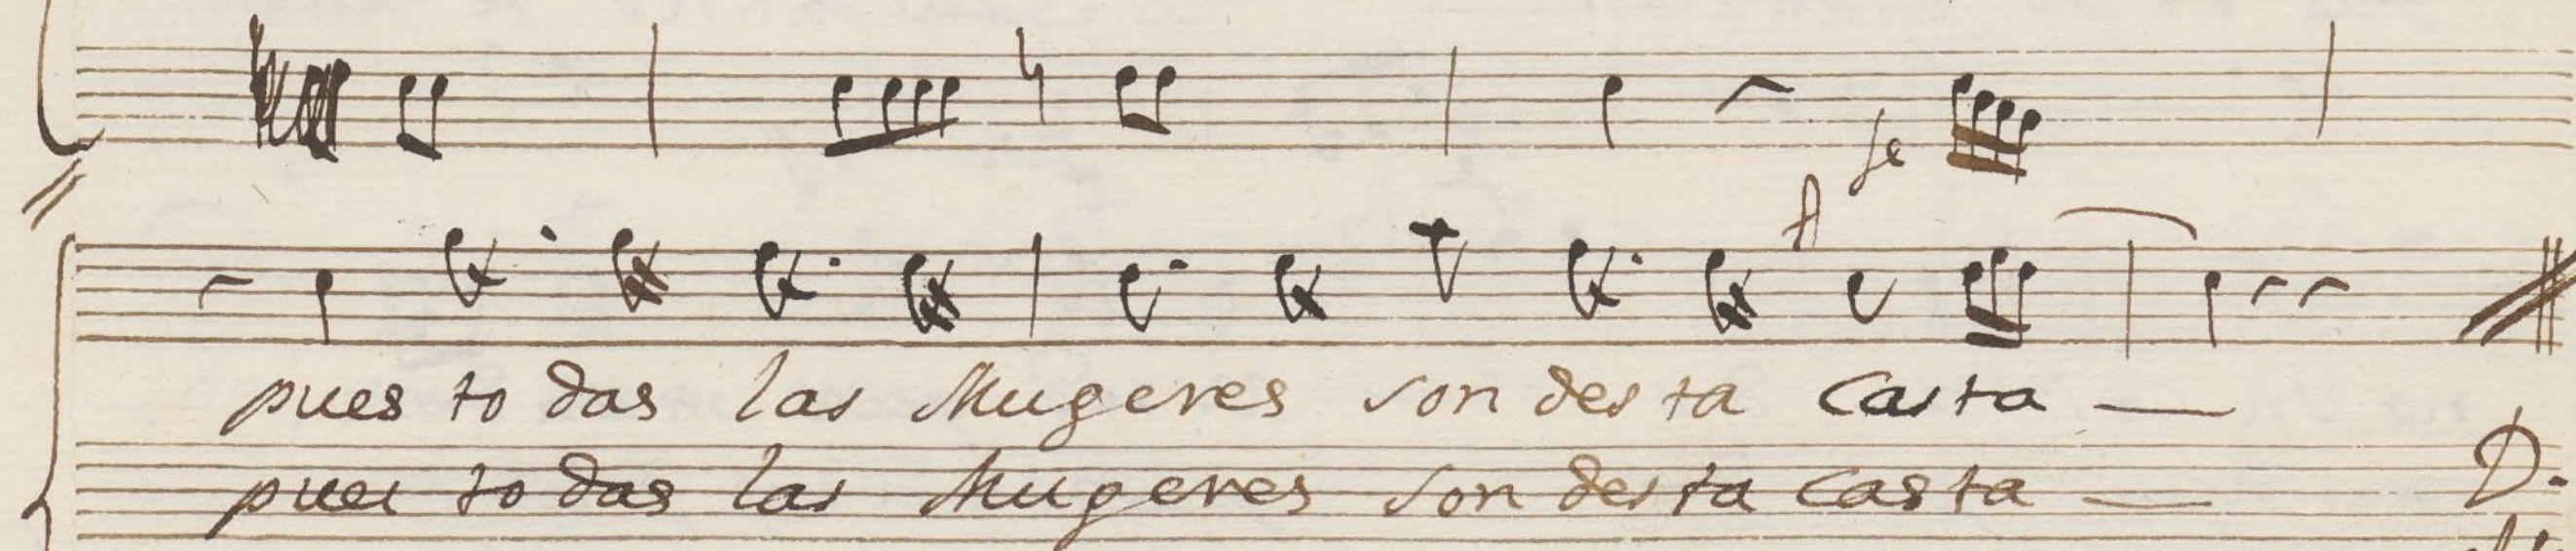 fe
pues to das las Mugeres son des ta Casta —
pues to das las Mugeres son des ta casta —
D.